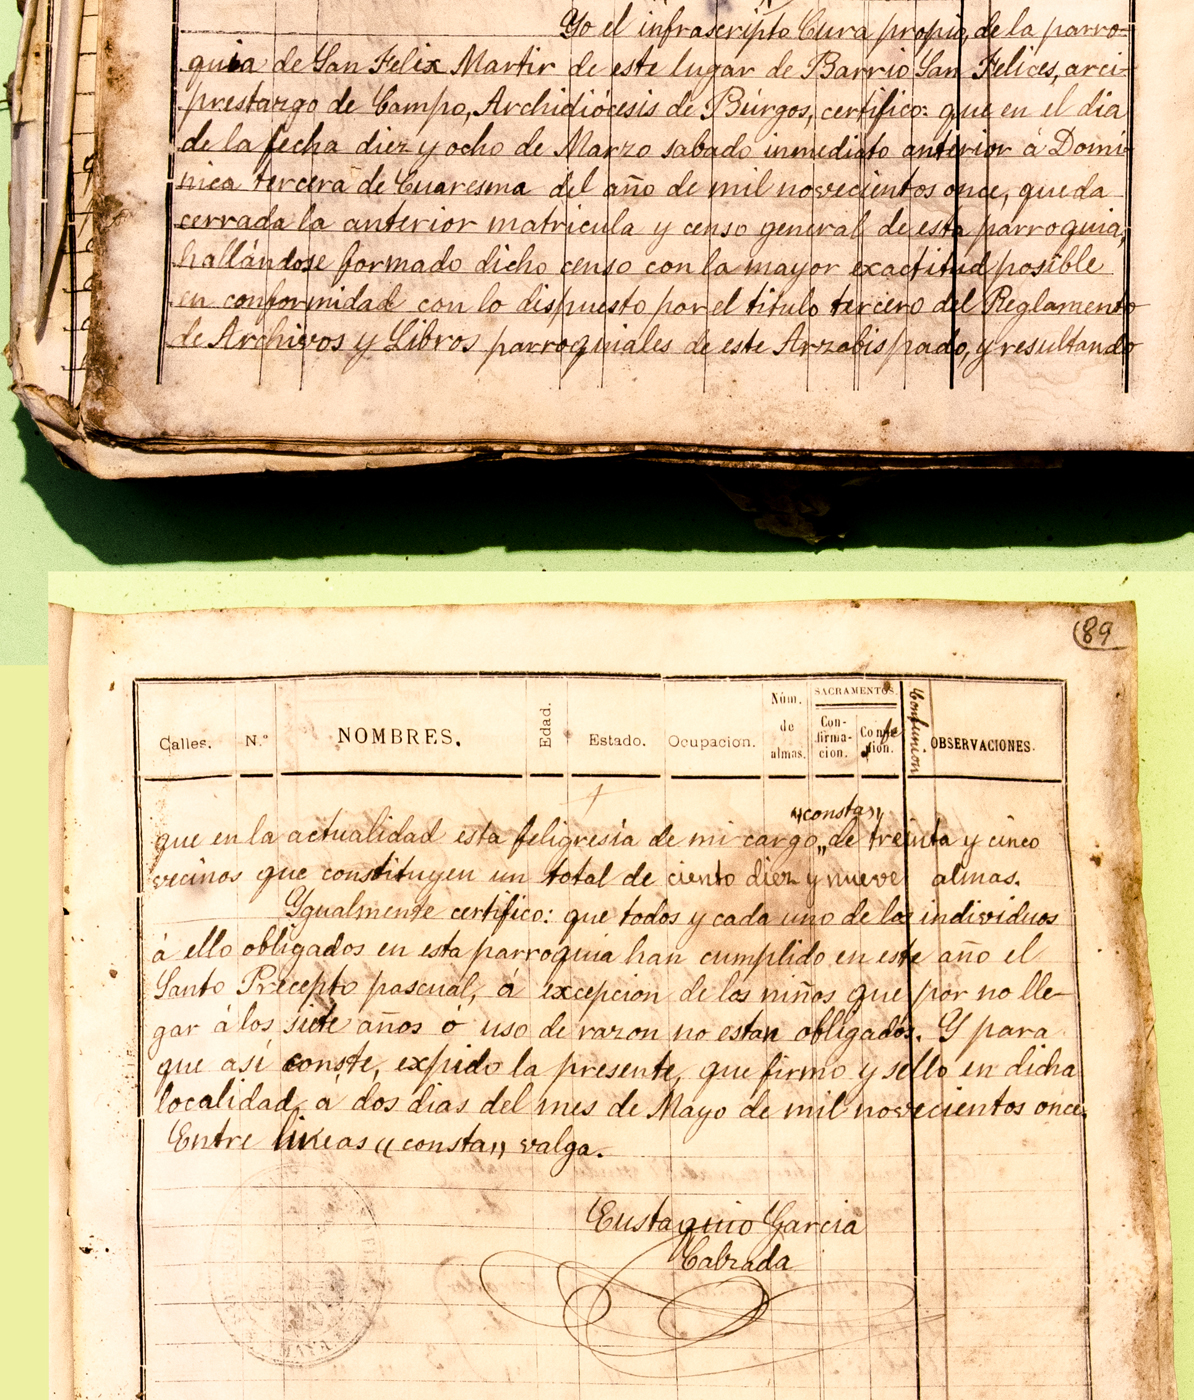 Yo el infrascripto Cura propio, de la parro=
quia de San Felix Martir de este lugar de Barrio San Felices, arci=
prestazgo de Campo, Archidiócesis de Búrgos, certifico: que en el dia
de la fecha diez y ocho de Marzo sabado inmediato anterior á Domi=
nica tercera de Cuaresma del año de mil novecientos once, queda
cerrada la anterior matricula y censo general de esta parroquia,
hallándose formado dicho censo con la mayor exactitud posible
en conformidad con lo dispuesto por el titulo tercero del Reglamento
de Archivos y Libros parroquiales de este Arzobispado, y resultando
(89
Calles. N.º NOMBRES. Edad. Estado. Ocupacion. Núm. de almas. SACRAMENTOS. Con-firma-cion. Confe sion. Comunion OBSERVACIONES.
„consta„
que en la actualidad esta feligresía de mi cargo„ de treinta y cinco
vecinos que constituyen un total de ciento diez y nueve almas.
Ygualmente certifico: que todos y cada uno de los individuos
á ello obligados en esta parroquia han cumplido en este año el
Santo Precepto pascual, á excepcion de los niños que por no lle-
gar á los siete años ó uso de razon no estan obligados. Y para
que así conste, expido la presente, que firmo y sello en dicha
localidad, a dos dias del mes de Mayo de mil novecientos once.
Entre lineas „consta„ valga.
Eustaquio Garcia
Calzada